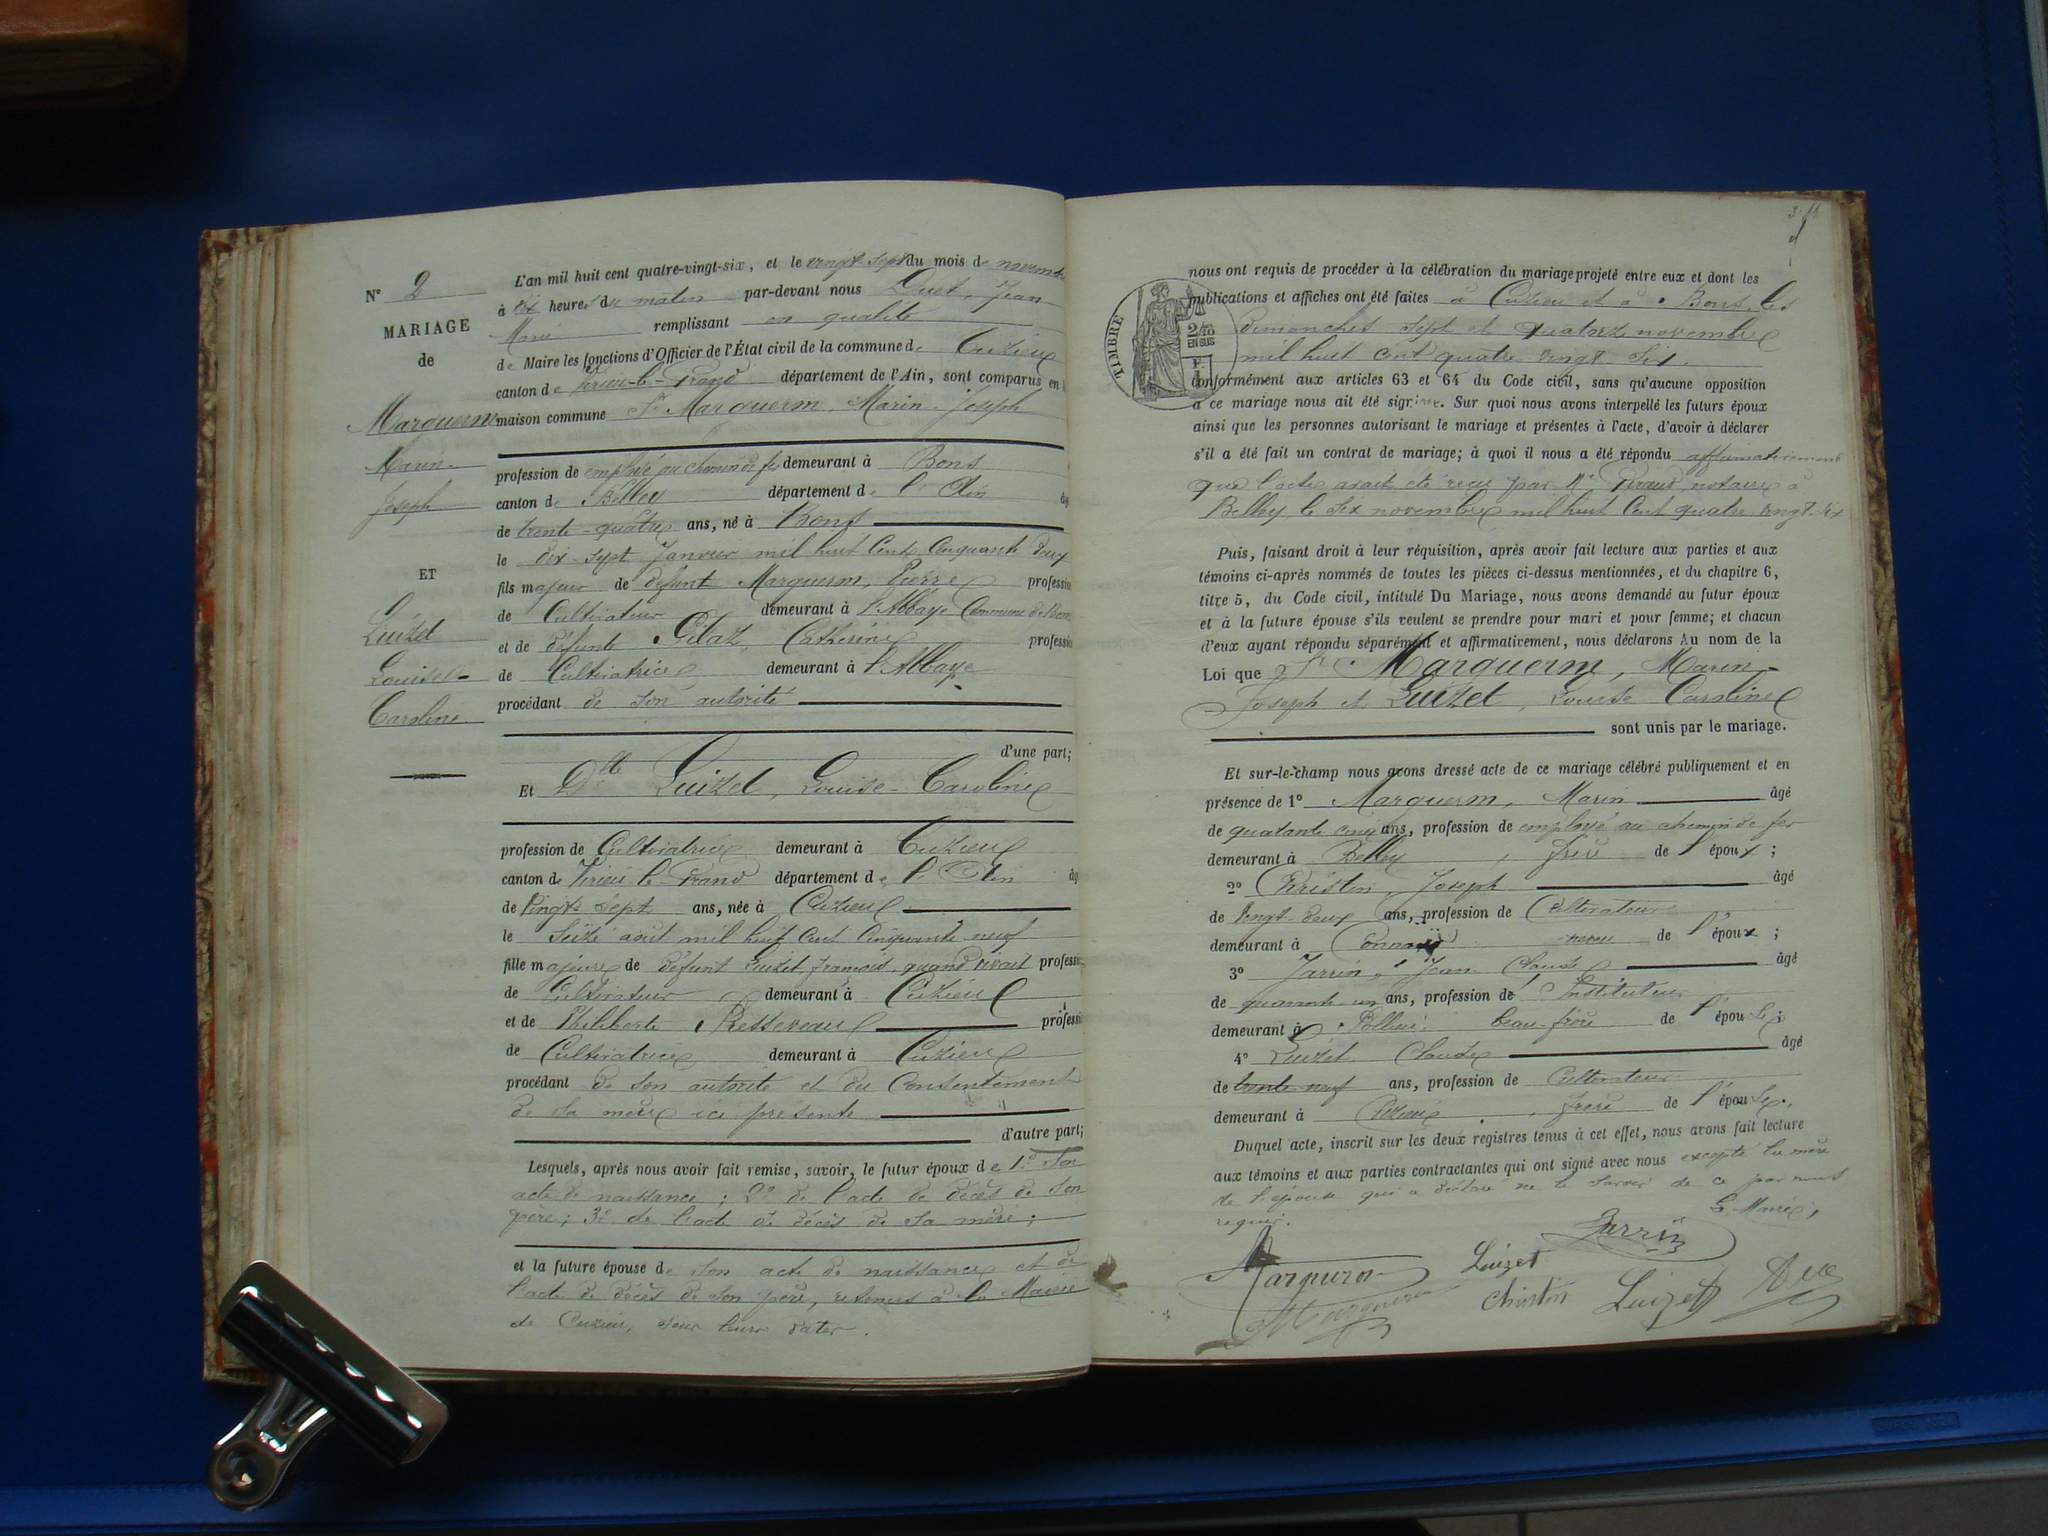 N° 2
MARIAGE
de
Margueron
Marin
Joseph
ET
Luizet
Louise
Caroline
L'an mil huit cent quatre-vingt-six, et le vingt sept du mois de novembre
à dix heures du matin par-devant nous Duet, Jean
Marie remplissant en qualité
de Maire les fonctions d'Officier de l'État civil de la commune de Cuzieu
canton de Virieu-le-Grand département de l'Ain, sont comparus en
maison commune Sr Margueron, Marin Joseph
profession de employé au chemin de fer demeurant à Bons
canton de Belley département de l'Ain
de trente-quatre ans, né à Bons
le dix-sept Janvier mil huit cent cinquante deux
fils majeur de défunt Margueron, Pierre profession
de Cultivateur demeurant à l'Abbaye Commune de Bons
et de défunte Pilaz Catherine profession
de Cultivatrice demeurant à l'Abbaye
procédant de son autorité
d'une part;
Et Dlle Luizet, Louise-Caroline
profession de Cultivatrice demeurant à Cuzieu
canton de Virieu-le-Grand département de l'Ain
de Vingt sept ans, née à Cuzieu
le seize août mil huit cent cinquante neuf
fille majeure de défunt Luizet, françois, quand vivait profession
de Cultivateur demeurant à Cuzieu
et de Philiberte profession
de Cultivatrice demeurant à Cuzieu
procédant de son autorité et du consentement
de sa mère ici présente
d'autre part;
Lesquels, après nous avoir fait remise, savoir, le futur époux de 1° son
acte de naissance; 2° de l'acte de décès de son
père; 3° de l'acte de décès de sa mère;
et la future épouse de son acte de naissance et de
l'acte de décès de son père, retenus à la Mairie
de Cuzieu, sous leurs dates.
TIMBRE
2/10
EN SUS
nous ont requis de procéder à la célébration du mariage projeté entre eux et dont les
publications et affiches ont été faites à Cuzieu et à Bons, les
dimanches sept et quatorze novembre
mil huit cent quatre vingt six.
conformément aux articles 63 et 64 du Code civil, sans qu'aucune opposition
à ce mariage nous ait été signifiée. Sur quoi nous avons interpellé les futurs époux
ainsi que les personnes autorisant le mariage et présentes à l'acte, d'avoir à déclarer
s'il a été fait un contrat de mariage; à quoi il nous a été répondu affirmativement
que l'acte avait été reçu par Me notaire à
Belley le six novembre mil huit cent quatre vingt six
Puis, faisant droit à leur réquisition, après avoir fait lecture aux parties et aux
témoins ci-après nommés de toutes les pièces ci-dessus mentionnées, et du chapitre 6,
titre 5, du Code civil, intitulé Du Mariage, nous avons demandé au futur époux
et à la future épouse s'ils veulent se prendre pour mari et pour femme; et chacun
d'eux ayant répondu séparément et affirmativement, nous déclarons Au nom de la
Loi que Sr Margueron, Marin
Joseph et Luizet, Louise Caroline
sont unis par le mariage.
Et sur-le-champ nous avons dressé acte de ce mariage célébré publiquement et en
présence de 1° Margueron, Marin âgé
de quarante cinq ans, profession de employé au chemin de fer
demeurant à Belley, frère de l'époux;
2° Christin, Joseph âgé
de vingt-deux ans, profession de Cultivateur
demeurant à neveu de l'époux;
3° Jarrin, Jean Claude âgé
de quarante un ans, profession de Instituteur
demeurant à Pollieu beau-frère de l'épouse;
4° Luizet Claude âgé
de trente neuf ans, profession de Cultivateur
demeurant à Cuzieu, frère de l'épouse.
Duquel acte, inscrit sur les deux registres tenus à cet effet, nous avons fait lecture
aux témoins et aux parties contractantes qui ont signé avec nous excepté la mère
de l'épouse qui a déclaré ne le savoir de ce par nous
requise. Le Maire,
Jarrin
Marguron Luizet
Marguron Christin Luizet Duet